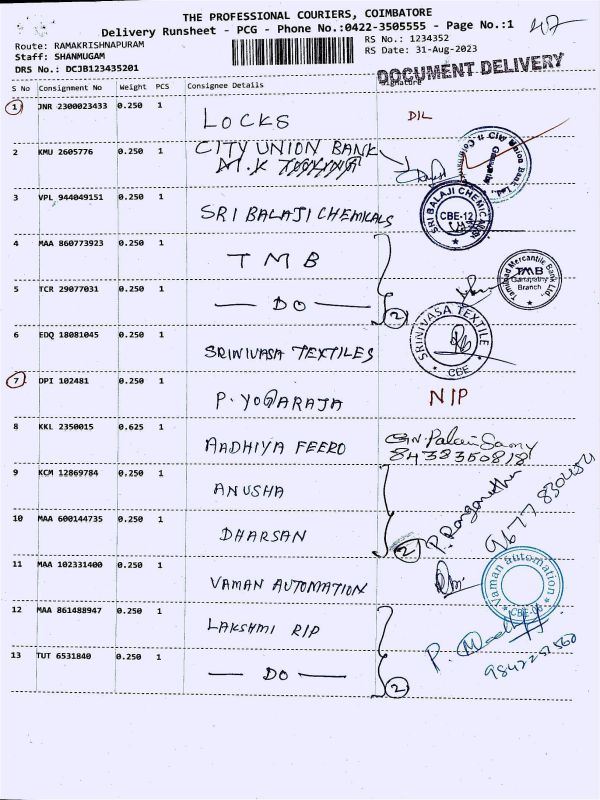 THE PROFESSIONAL COURIERS, COIMBATORE
Delivery Runsheet - PCG - Phone No.:0422-3505555 - Page No.:1
Route: RAMAKRISHNAPURAM RS No.: 1234352
Staff: SHANMUGAM RS Date: 31-Aug-2023
DRS No.: DCJB123435201
DOCUMENT DELIVERY
S No Consignment No Weight PCS Consignee Details Signature
1 JNR 2300023433 0.250 1 LOCKS DIL
2 KMU 2605776 0.250 1 CITY UNION BANK
City Union Bank Ltd.,
3 VPL 944049151 0.250 1 SRI BALAJI CHEMICALS
SRI BALAJI CHEMICALS
CBE-12
4 MAA 860773923 0.250 1 TMB
5 TCR 29077031 0.250 1 DO 2
Tamilnad Mercantile Bank Ltd.,
TMB
Ganapathy
Branch
6 EDQ 18081045 0.250 1 SRINIVASA TEXTILES
SRINIVASA TEXTILE
CBE
7 DPI 102481 0.250 1 P. YOGARAJA NIP
8 KKL 2350015 0.625 1 AADHIYA FEERO
8438350818
9 KCM 12869784 0.250 1 ANUSHA
10 MAA 600144735 0.250 1 DHARSAN 2
11 MAA 102331400 0.250 1 VAMAN AUTOMATION
Vaman automation
12 MAA 861488947 0.250 1 LAKSHMI RIP
13 TUT 6531840 0.250 1 DO 2